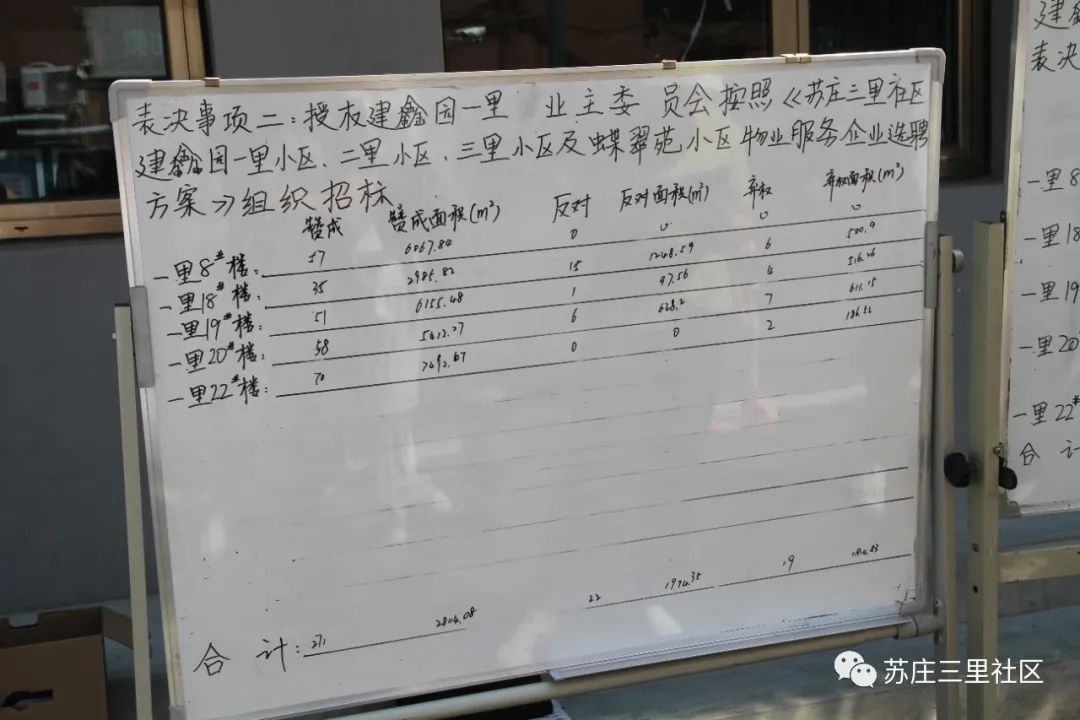 表决事项二:授权建鑫园一里 业主委员会按照《苏庄三里社区
建鑫园一里小区、二里小区、三里小区及蝶翠苑小区物业服务企业选聘
方案》组织招标
赞成 赞成面积(m²) 反对 反对面积(m²) 弃权 弃权面积(m²)
一里8#楼: 57 6067.84 0 0 0 0
一里18#楼: 35 2985.82 15 1248.59 6 500.9
一里19#楼: 51 6155.48 1 97.56 4 516.26
一里20#楼: 58 5412.27 6 628.2 7 611.15
一里22#楼: 70 7492.67 0 0 2 186.52
合 计: 271 28114.08 22 1974.35 19 1814.83
建鑫
表决
一里8
一里18
一里19
一里20
一里22#
合 计
苏庄三里社区